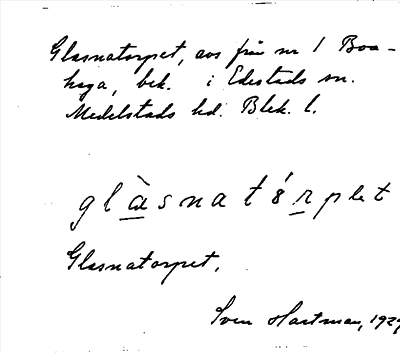 Glasnatorpet, avs från nr 1 Boa-
haga, bek. i Edestads sn.
Medelstads hd. Blek. l.
glàsnatórpet
Glasnatorpet.
Sven Hartman, 1929